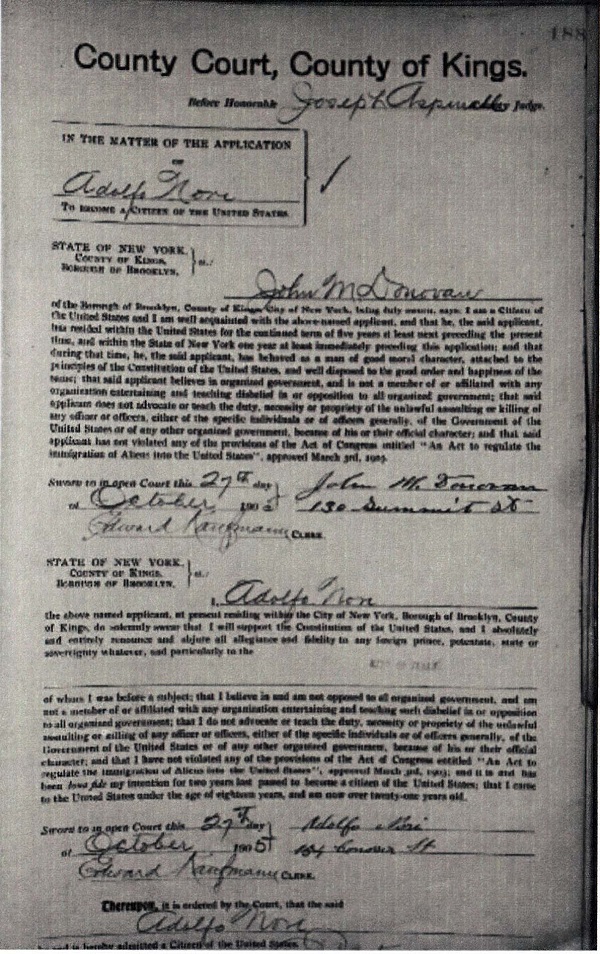 188
County Court, County of Kings.
Before Honorable Joseph Aspinall County Judge.
IN THE MATTER OF THE APPLICATION
OF
Adolfo Nori
TO BECOME A CITIZEN OF THE UNITED STATES.
STATE OF NEW YORK,
COUNTY OF KINGS,
BOROUGH OF BROOKLYN,
} ss.:
John M Donovan
of the Borough of Brooklyn, County of Kings, City of New York, being duly sworn, says: I am a Citizen of
the United States and I am well acquainted with the above-named applicant, and that he, the said applicant,
has resided within the United States for the continued term of five years at least next preceding the present
time, and within the State of New York one year at least immediately preceding this application; and that
during that time, he, the said applicant, has behaved as a man of good moral character, attached to the
principles of the Constitution of the United States, and well disposed to the good order and happiness of the
same; that said applicant believes in organized government, and is not a member of or affiliated with any
organization entertaining and teaching disbelief in or opposition to all organized government; that said
applicant does not advocate or teach the duty, necessity or propriety of the unlawful assaulting or killing of
any officer or officers, either of the specific individuals or of officers generally, of the Government of the
United States or of any other organized government, because of his or their official character; and that said
applicant has not violated any of the provisions of the Act of Congress entitled "An Act to regulate the
immigration of Aliens into the United States", approved March 3rd, 1903.
Sworn to in open Court this 27th day } John M. Donovan
of October 1905 130 Summit St
Edward Kaufmann CLERK.
STATE OF NEW YORK,
COUNTY OF KINGS,
BOROUGH OF BROOKLYN,
} ss.:
I, Adolfo Nori
the above named applicant, at present residing within the City of New York, Borough of Brooklyn, County
of Kings, do solemnly swear that I will support the Constitution of the United States, and I absolutely
and entirely renounce and abjure all allegiance and fidelity to any foreign prince, potentate, state or
sovereignty whatever, and particularly to the
of whom I was before a subject; that I believe in and am not opposed to all organized government, and am
not a member of or affiliated with any organization entertaining and teaching such disbelief in or opposition
to all organized government; that I do not advocate or teach the duty, necessity or propriety of the unlawful
assaulting or killing of any officer or officers, either of the specific individuals or of officers generally, of the
Government of the United States or of any other organized government, because of his or their official
character; and that I have not violated any of the provisions of the Act of Congress entitled "An Act to
regulate the immigration of Aliens into the United States", approved March 3rd, 1903; and it is and has
been bona fide my intention for two years last passed to become a citizen of the United States; that I came
to the United States under the age of eighteen years, and am now over twenty-one years old.
Sworn to in open Court this 27th day } Adolfo Nori
of October 1905 154 St
Edward Kaufmann CLERK.
Thereupon, it is ordered by the Court, that the said
Adolfo Nori
be and is hereby admitted a Citizen of the United States.